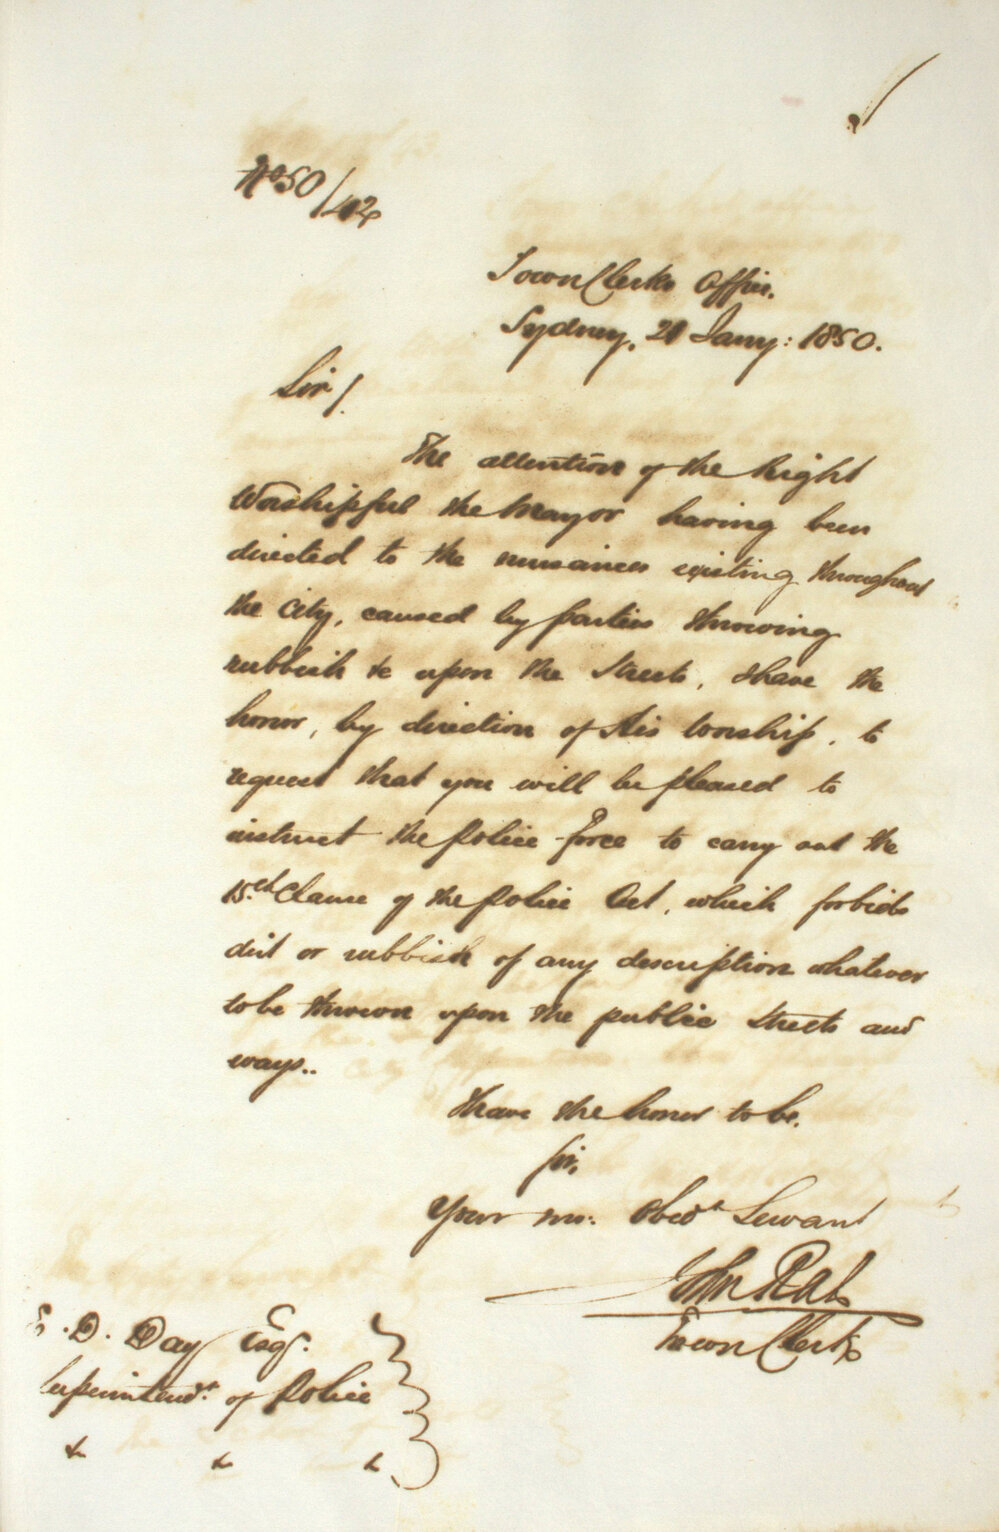 No 50/42
Town Clerks Office.
Sydney, 21 Jany: 1850.
Sir/.
The attention of the Right
Worshipful the Mayor having been
directed to the nuisances existing throughout
the City, caused by parties throwing
rubbish &c upon the Streets, I have the
honor, by direction of His Worship, to
request that you will be pleased to
instruct the Police Force to carry out the
15th Clause of the Police Act, which forbids
dirt or rubbish of any description whatever
to be thrown upon the public Streets and
ways..
I have the honor to be.
Sir,
Your mo: Obedt Servant
John Rae
Town Clerk
E. D. Day Esqr.
Superintendt. of Police
&c &c &c